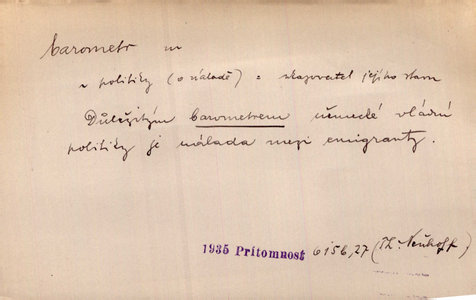 barometr m
v politiky (o náladě) = ukazovatel jejího stavu
Důležitým barometrem německé vládní
politiky je nálada mezi emigranty.
1935 Přítomnost 615b,27 (Th. Neuhoff)